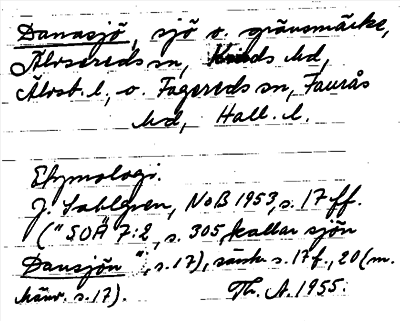 Danasjö, sjö o. gränsmärke,
Älvsereds sn, Kinds hd,
Älvsb. l., o. Fagereds sn, Faurås
hd, Hall. l.
Etymologi.
J. Sahlgren, NoB 1953, s. 17 ff.
("SOÄ 7:2, s. 305, kallar sjön
Dansjön", s. 17), särsk. s. 17 f., 20 (m.
hänv. s. 17). Th. A. 1955.